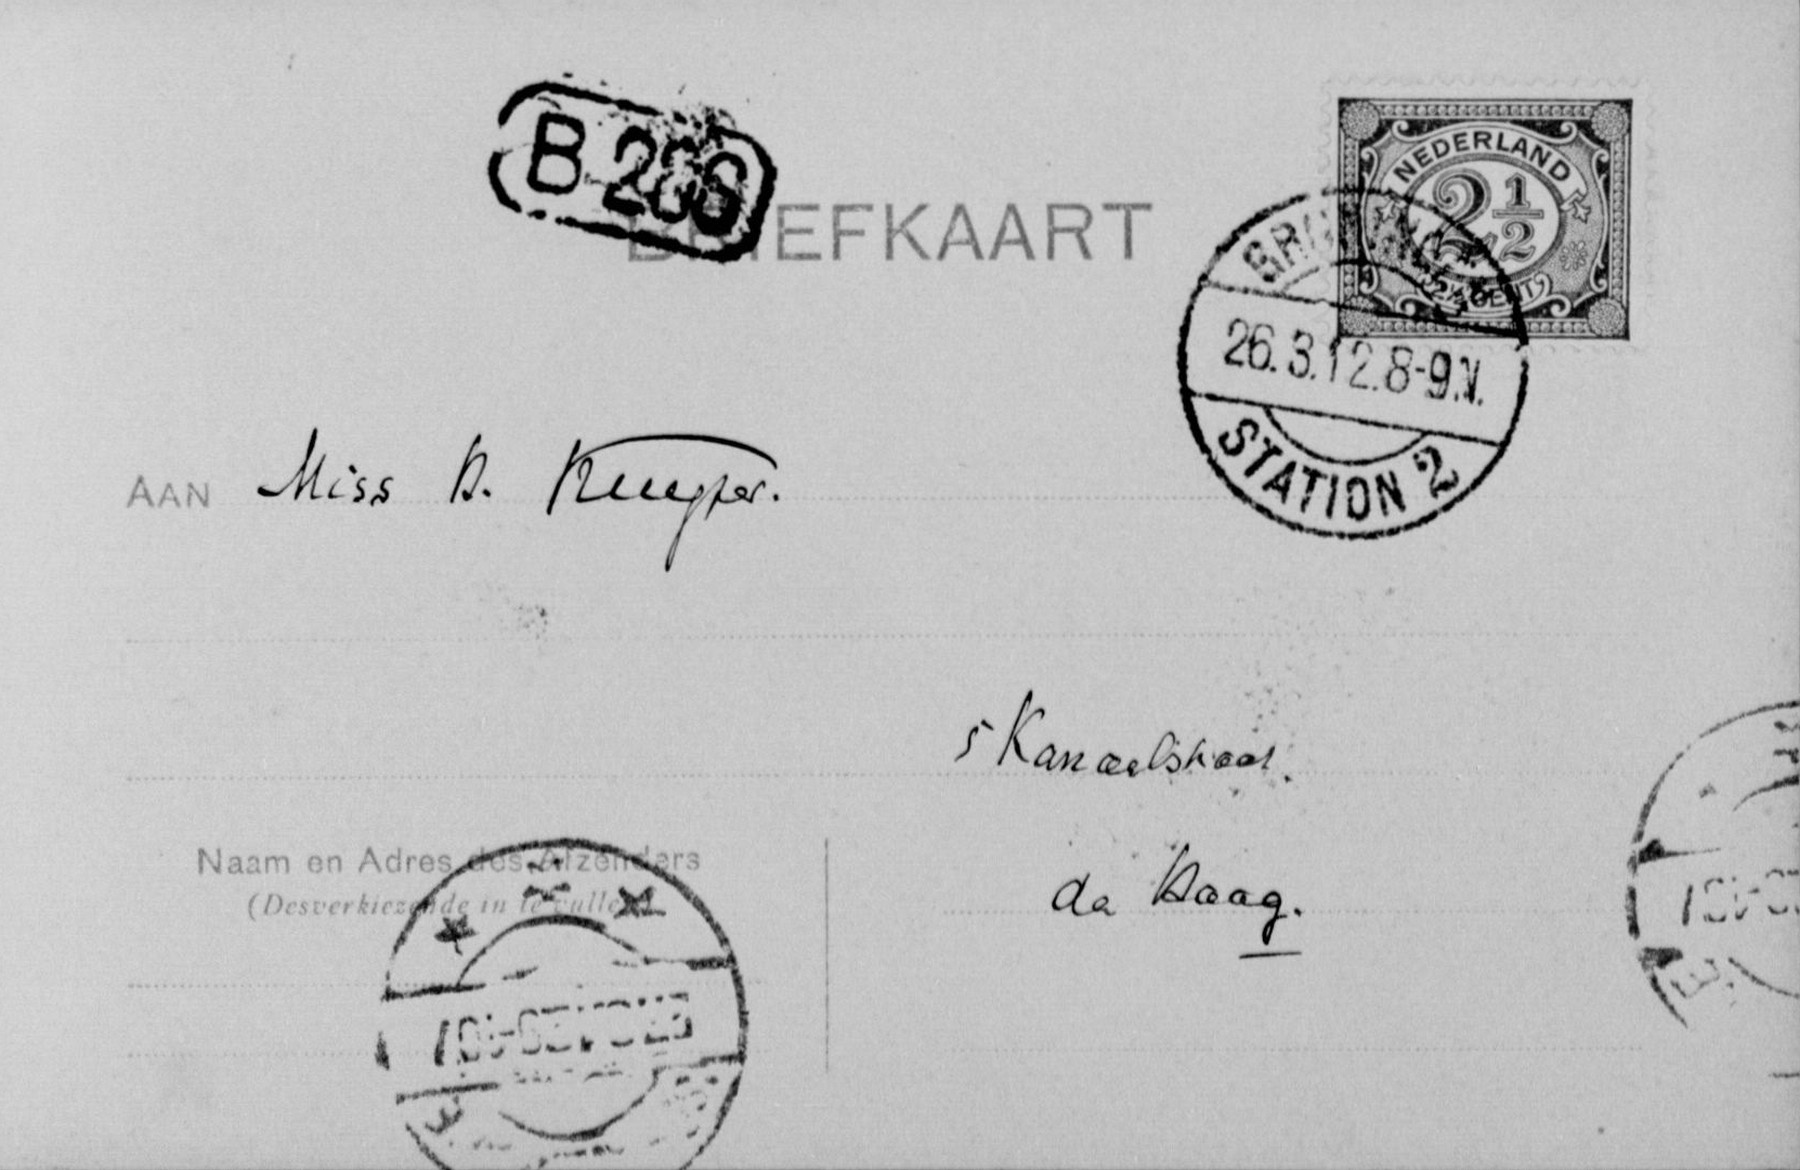 B 286
BRIEFKAART
NEDERLAND
2 1/2
2½ CENT
GRONINGEN
26.3.12.8-9.V.
STATION 2
AAN Miss H. Kuyper.
5 Kanaalstraat.
de Haag.
Naam en Adres des Afzenders
(Desverkiezende in te vullen)